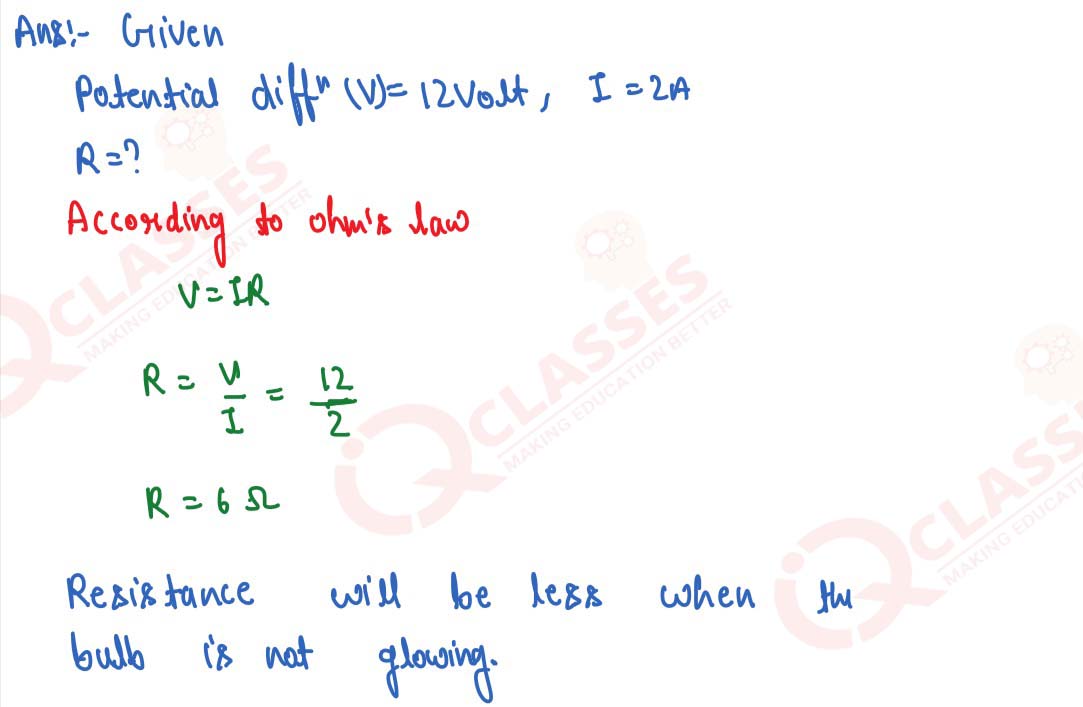 Ans:- Given
Potential diffⁿ (V)= 12Volt, I = 2A
R=?
According to ohm's law
V=IR
R = V/I = 12/2
R = 6 Ω
Resistance will be less when the
bulb is not glowing.
QCLASSES
MAKING EDUCATION BETTER
iQCLASSES
MAKING EDUCATION BETTER
iQCLASSES
MAKING EDUCATION